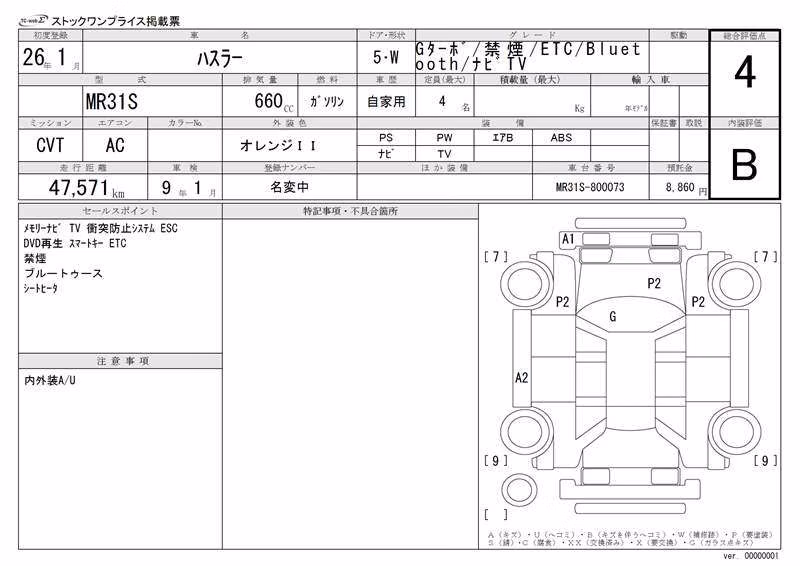 TC-webΣ ストックワンプライス掲載票
初度登録 車名 ドア・形状 グレード 駆動 総合評価点
26年 1月 ハスラー 5・W Gﾀｰﾎﾞ/禁煙/ETC/Bluet
ooth/ﾅﾋﾞTV
4
型式 排気量 燃料 車歴 定員(最大) 積載量(最大) 輸入車
MR31S 660CC ｶﾞｿﾘﾝ 自家用 4名 Kg 年ﾓﾃﾞﾙ
ミッション エアコン カラーNo. 外装色 装備 保証書 取説 内装評価
CVT AC オレンジII PS PW ｴｱB ABS
ﾅﾋﾞ TV
B
走行距離 車検 登録ナンバー ほか装備 車台番号 預託金
47,571km 9年 1月 名変中 MR31S-800073 8,860円
セールスポイント 特記事項・不具合箇所
ﾒﾓﾘｰﾅﾋﾞ TV 衝突防止ｼｽﾃﾑ ESC
DVD再生 ｽﾏｰﾄｷｰ ETC
禁煙
ブルートゥース
ｼｰﾄﾋｰﾀ
注意事項
内外装A/U
A1
[7] [7]
P2
P2 P2
G
A2
[9] [9]
[ ]
A(キズ)・U(ヘコミ)・B(キズを伴うヘコミ)・W(補修跡)・P(要塗装)
S(錆)・C(腐食)・XX(交換済み)・X(要交換)・G(ガラス点キズ)
ver. 00000001